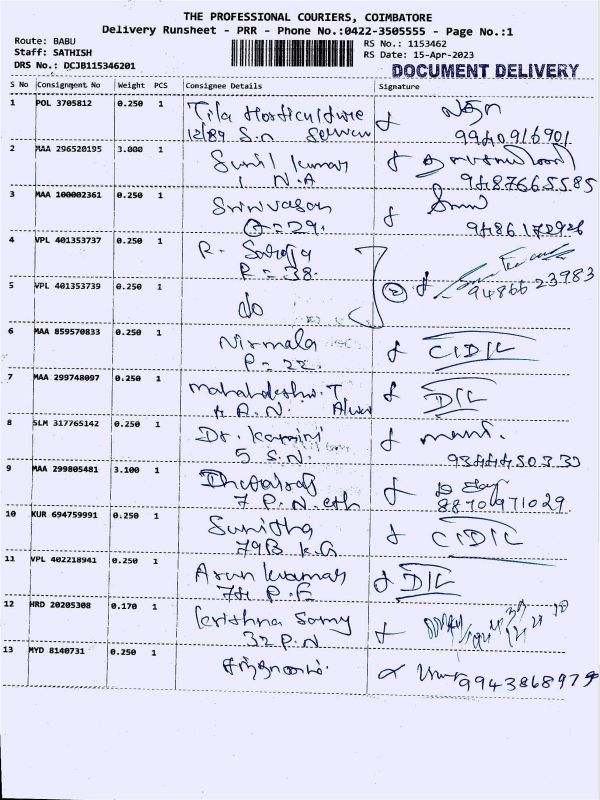 THE PROFESSIONAL COURIERS, COIMBATORE
Delivery Runsheet - PRR - Phone No.:0422-3505555 - Page No.:1
Route: BABU
Staff: SATHISH
DRS No.: DCJB115346201
RS No.: 1153462
RS Date: 15-Apr-2023
DOCUMENT DELIVERY
S No Consignment No Weight PCS Consignee Details Signature
1 POL 3705812 0.250 1 Tila Horticulture
12/89 S.n
9940916901
2 MAA 296520195 3.000 1 Sunil kumar
1 N.A
9487665585
3 MAA 100002361 0.250 1 Srinivasan
=29.
4 VPL 401353737 0.250 1 R. Saroja
R = 38.
5 VPL 401353739 0.250 1 do
2 9486623983
6 MAA 859570833 0.250 1 Nirmala
P = 22.
7 MAA 299748097 0.250 1
8 SLM 317765142 0.250 1 Dr.
5 S.N.
9 MAA 299805481 3.100 1
7 P.N.
8870971029
10 KUR 694759991 0.250 1 Sunitha
79B K.G
11 VPL 402218941 0.250 1 Arun kumar
74 P.E
12 HRD 20205308 0.170 1 krishna Samy
32 P.N
13 MYD 8140731 0.250 1
9943868979